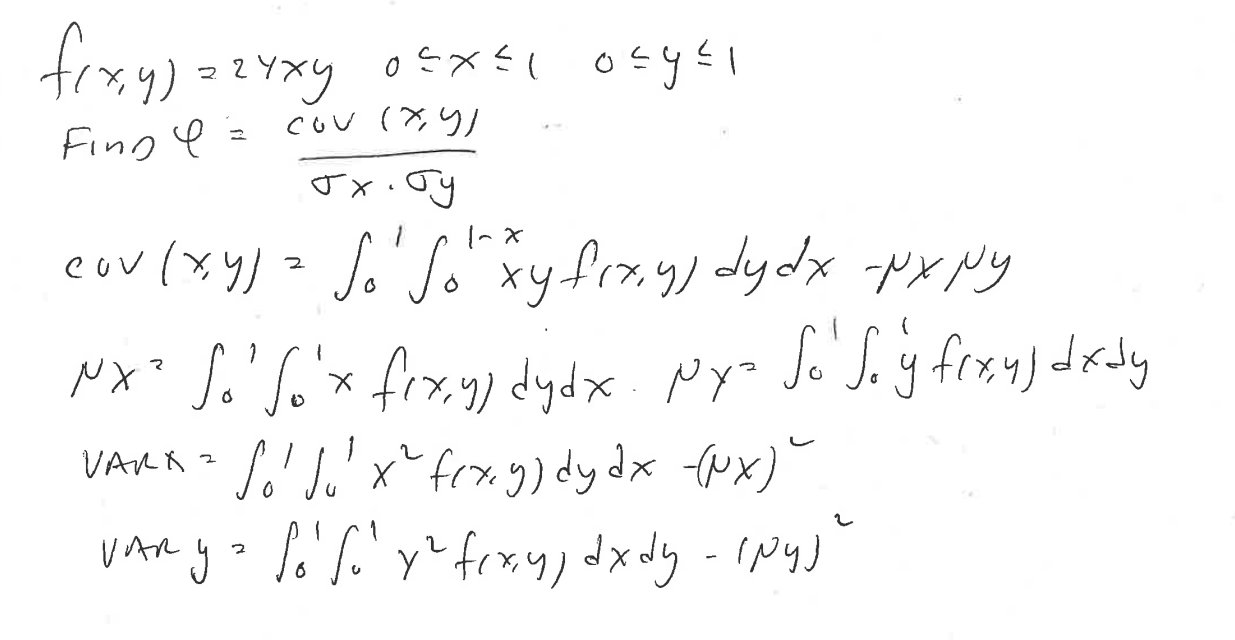 f(x,y) = 24xy 0 ≤ x ≤ 1 0 ≤ y ≤ 1
Find ρ = cov (x,y) / σx · σy
cov (x,y) = ∫₀¹ ∫₀¹⁻ˣ xy f(x,y) dy dx - μx μy
μx = ∫₀¹ ∫₀¹ x f(x,y) dy dx . μy = ∫₀¹ ∫₀¹ y f(x,y) dx dy
VAR x = ∫₀¹ ∫₀¹ x² f(x,y) dy dx - (μx)²
VAR y = ∫₀¹ ∫₀¹ y² f(x,y) dx dy - (μy)²